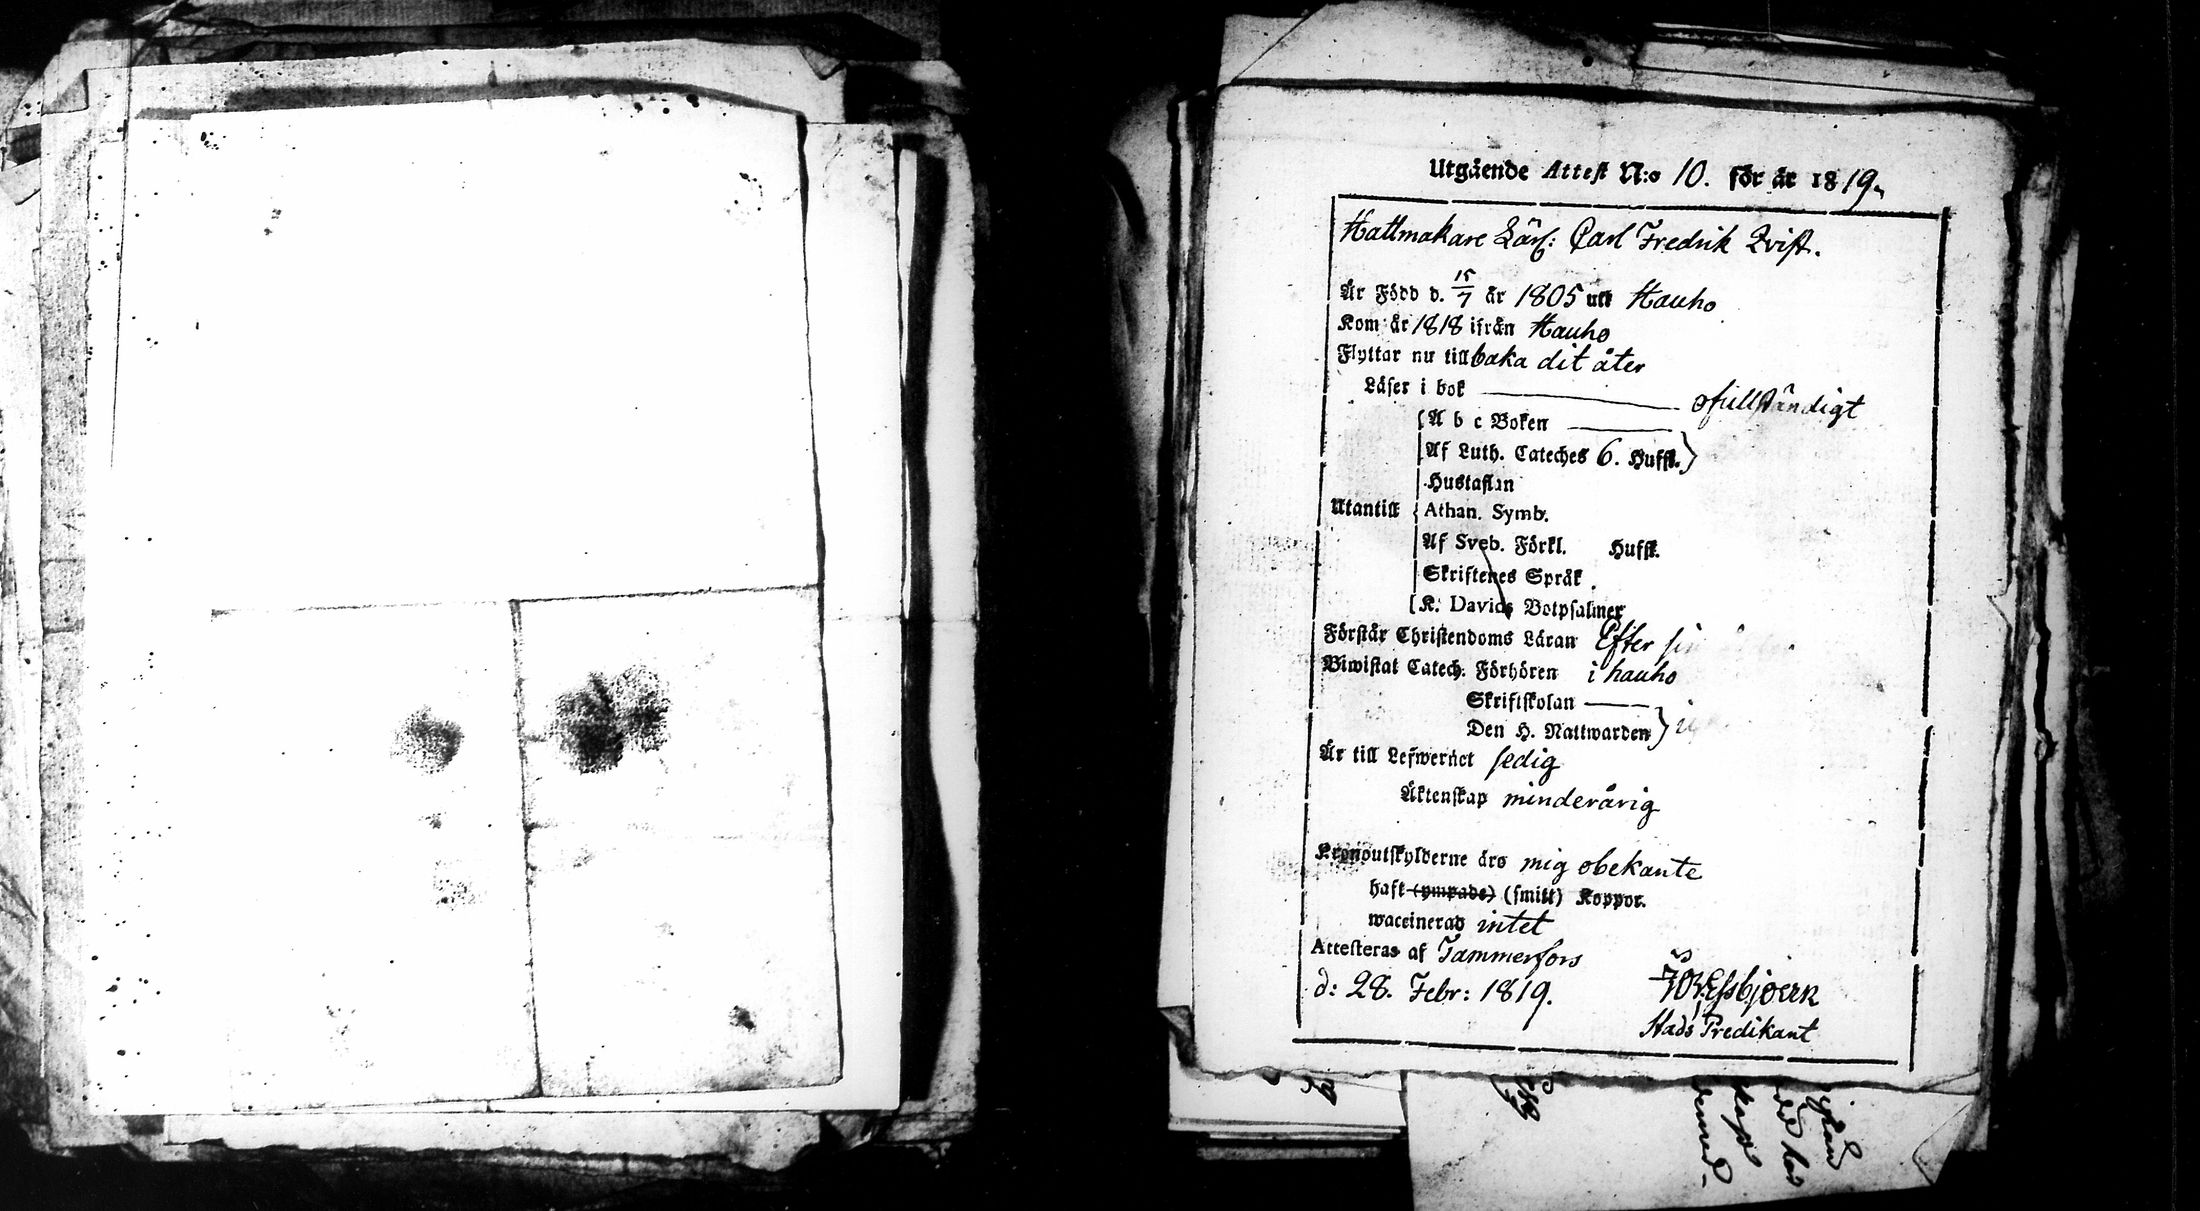 Utgående Attest N:o 10. för år 1819.
Hattmakare Lärl: Carl Fredrik Qvist.
Är Född d. 15/7 år 1805 uti Hauho
Kom år 1818 ifrån Hauho
Flyttar nu tillbaka dit åter
Läser i bok ofullständigt
A b c Boken
Af Luth. Cateches 6. Hufst.
Hustaflan
Utantill Athan. Symb.
Af Sveb. Förkl. Hufst.
Skriftenes Språk
K. Davids Botpsalmer
Förstår Christendoms Läran Efter
Biwistat Catech. Förhören i hauho
Skriftskolan
Den H. Nattwarden
Är till Lefwernet sedig
Äktenskap minderårig
Kronoutskylderne äro mig obekante
haft (ympade) (smitt) Koppor.
waccinerad intet
Attesteras af Tammerfors
d: 28. Febr: 1819.
Stads Predikant